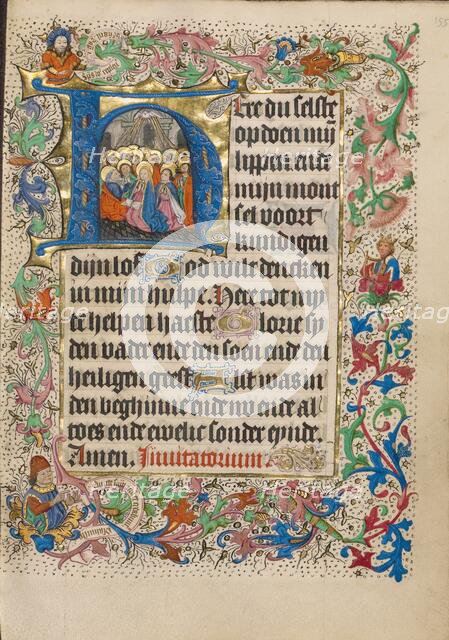 Here du selste
op doen mijn
lippen ende
mijn mont
sel voort
kundigen
dijn lof God wilt dencken
in mijn hulpe. Here tot my
te helpen haeste Glorie sy
den vader ende den soen ende den
heiligen geest Alst was in
den beghinne ende nv ende al
toes ende ewelic sonder eynde.
Amen. Inuitatorium.
155
Heritage
Heritage
Heritage
Heritage
Heritage
Heritage
Heritage
Heritage
Heritage